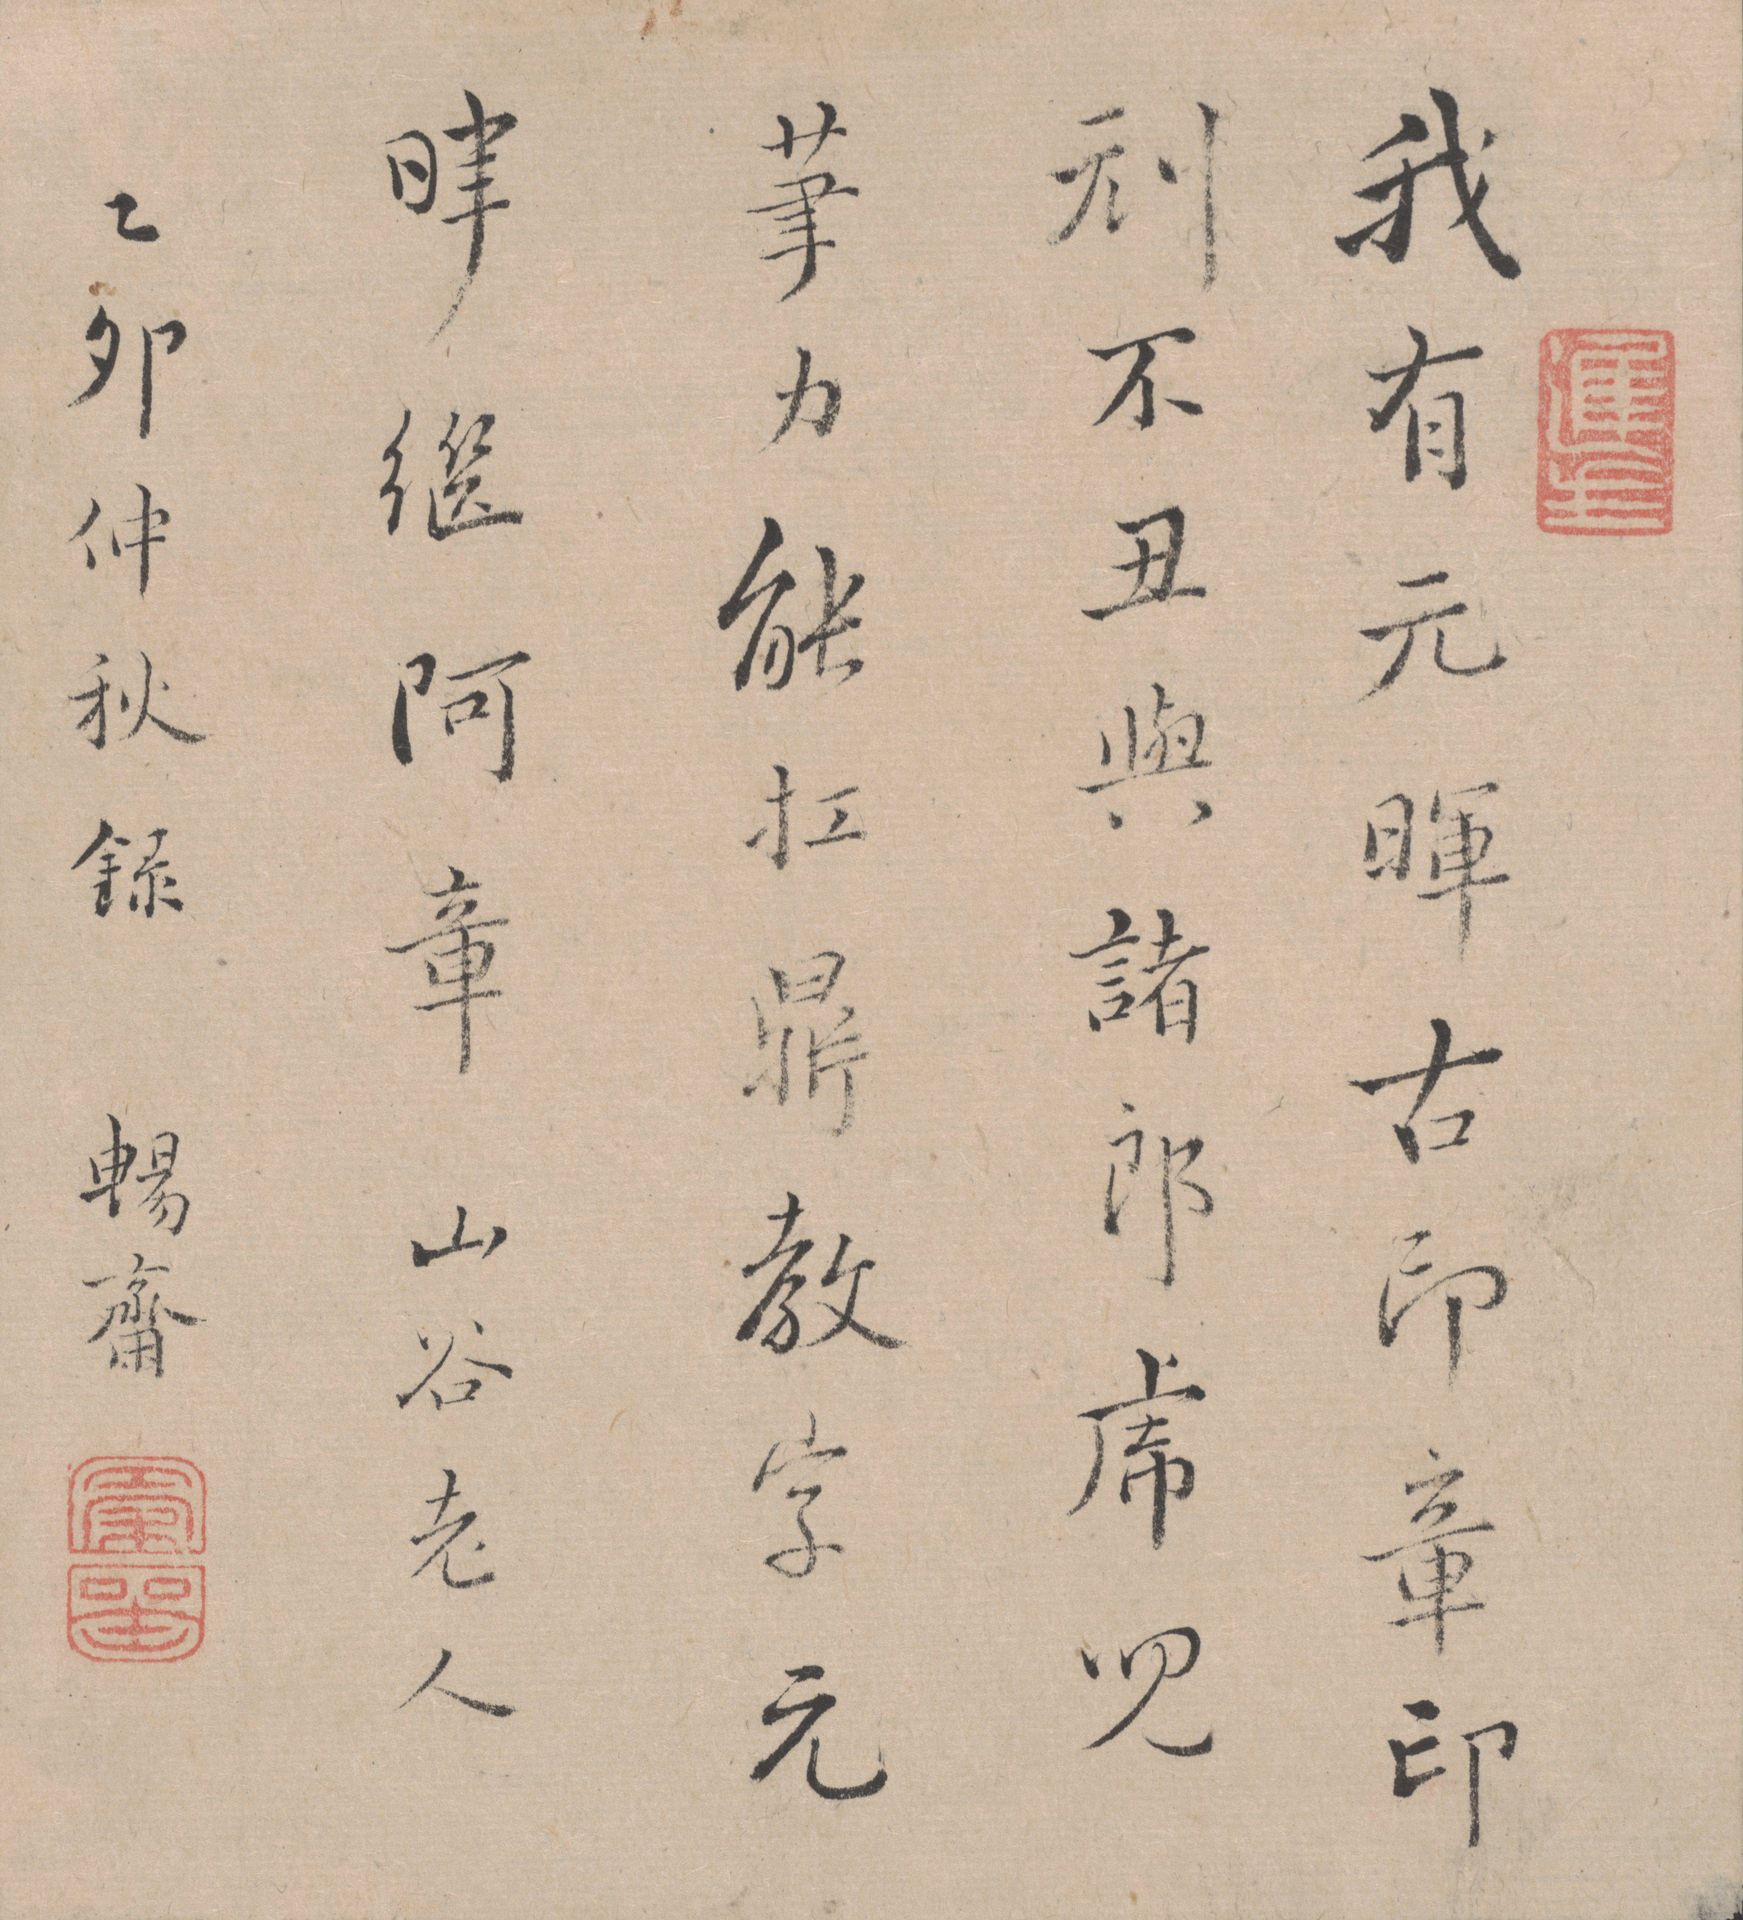 我有元暉古印章印
刓不丑與諸郎虎兒
筆力能扛鼎教字元
暉繼阿章 山谷老人
乙卯仲秋錄 暢齋